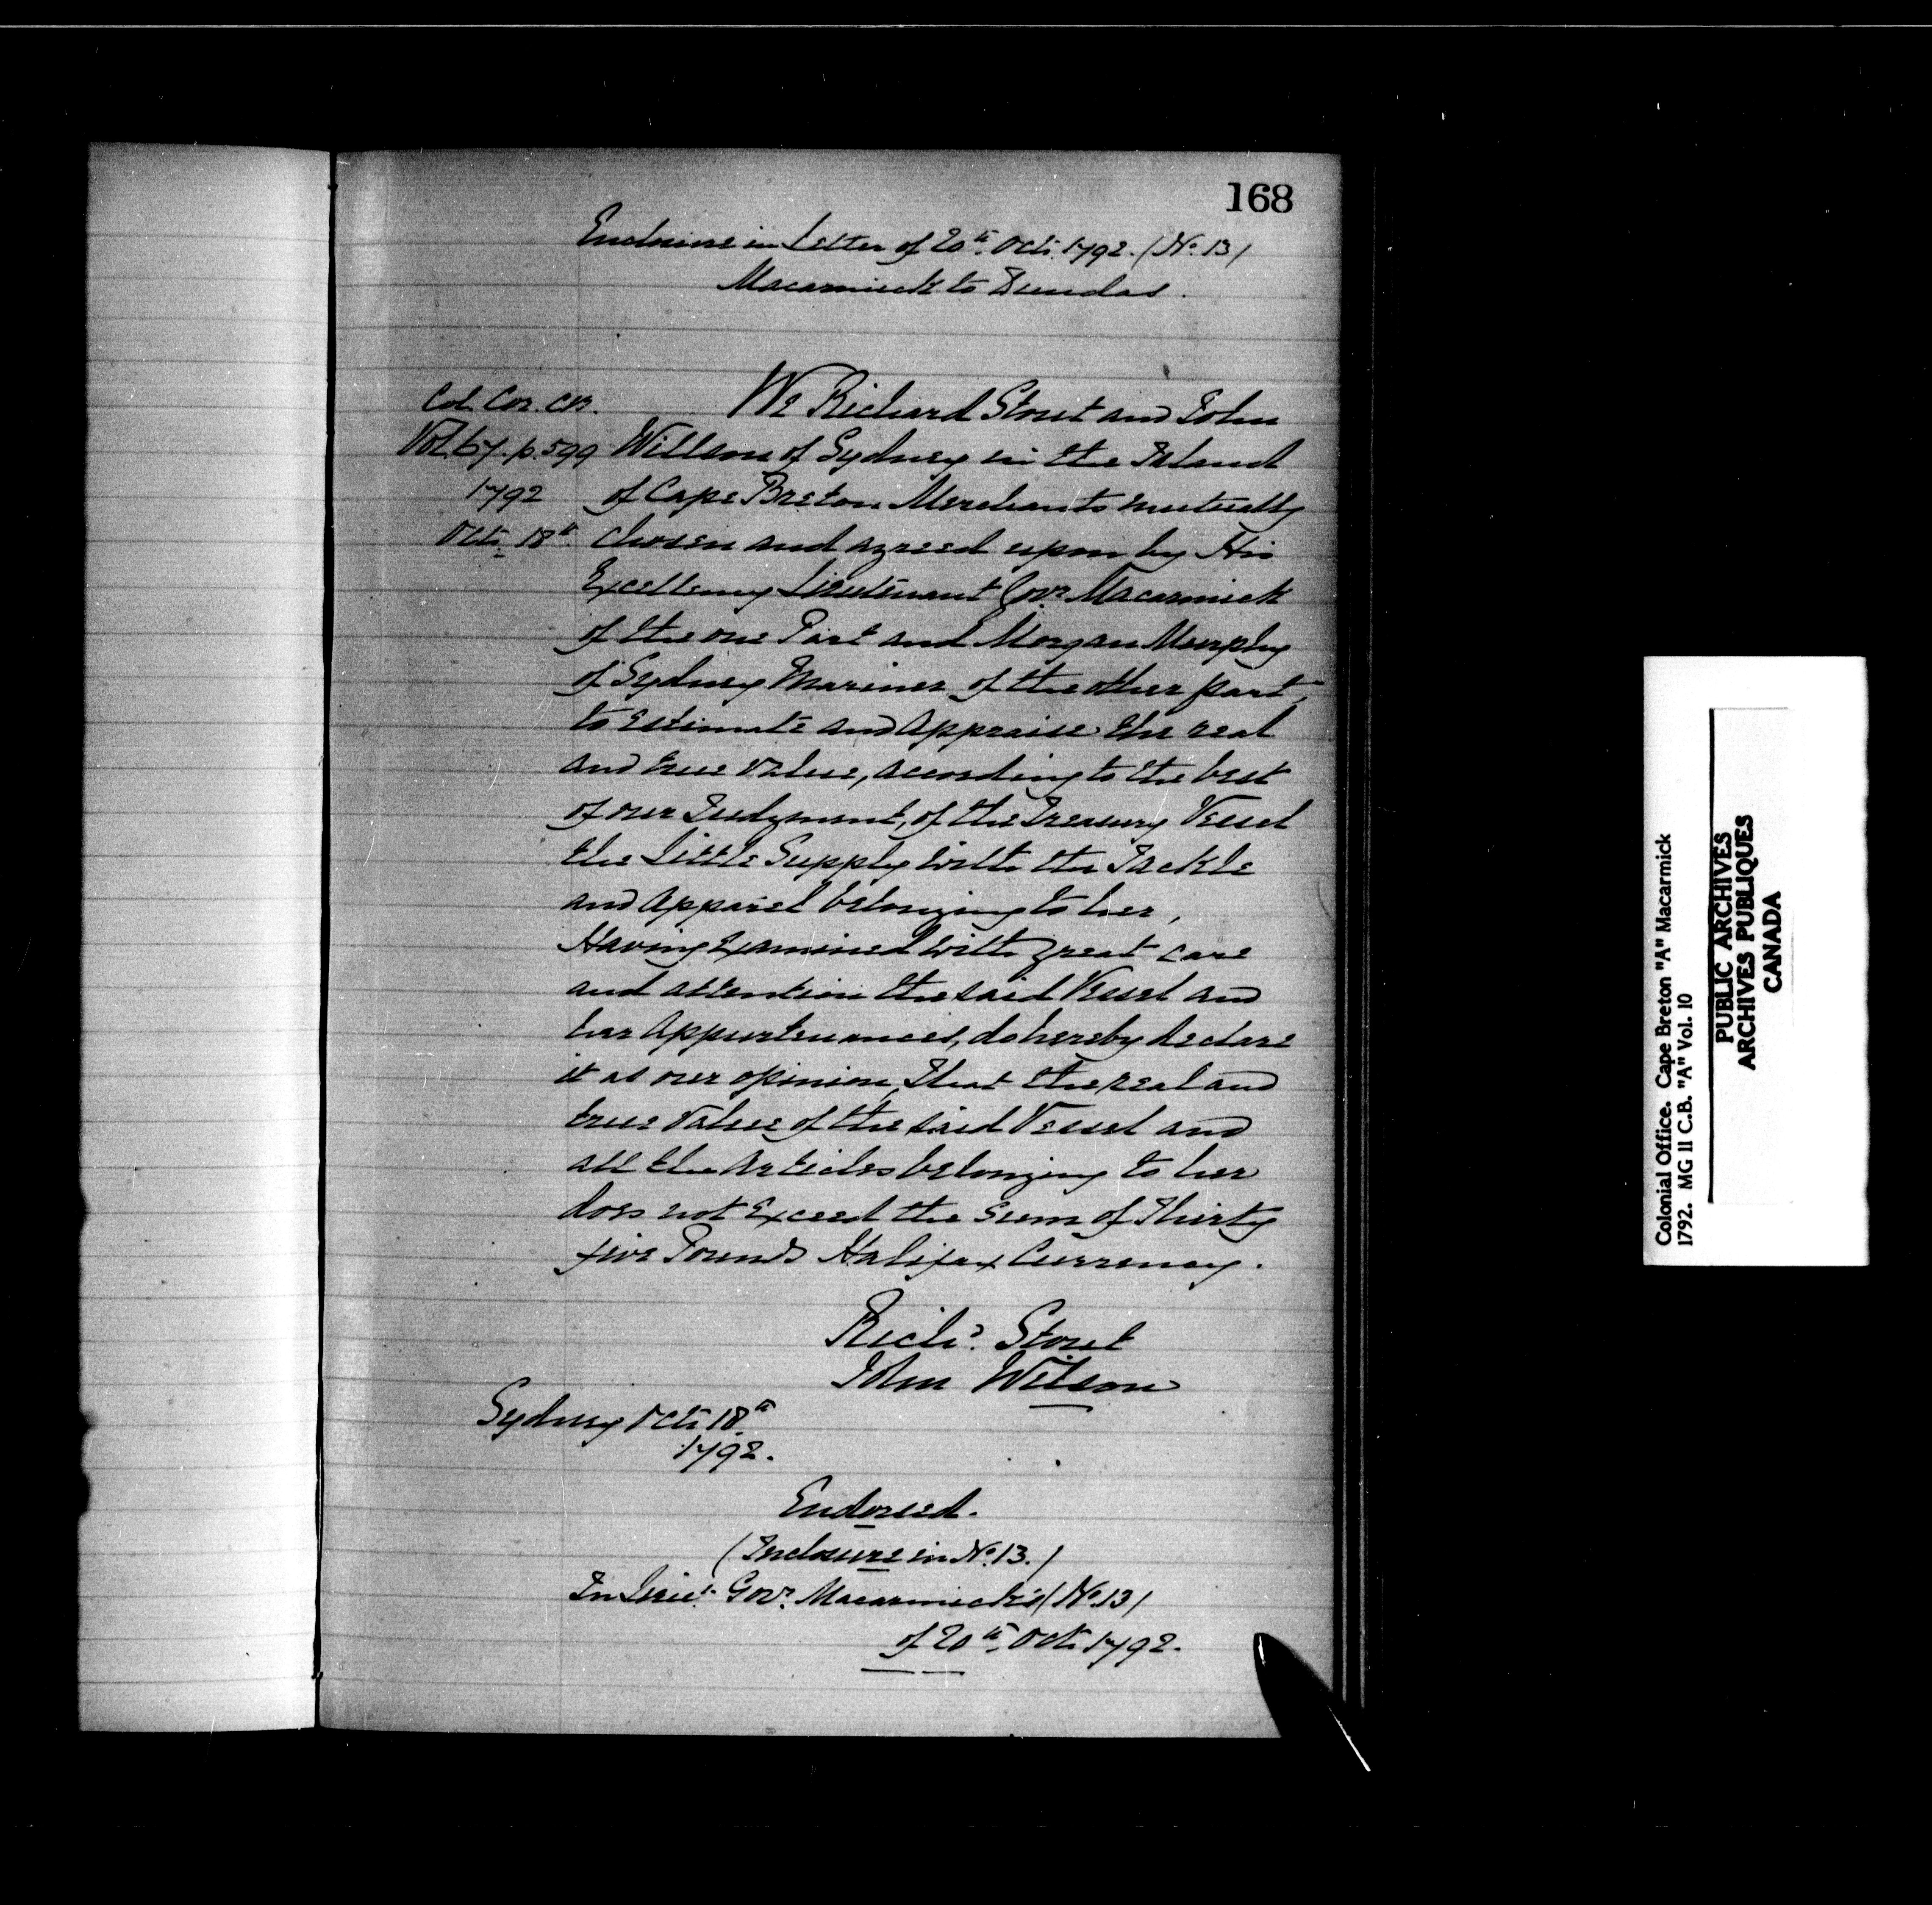 168
Enclosure in Letter of 20th Octr. 1792. (No. 13)
Macarmick to Dundas.
Col. Cor. C.B.
Vol. 67. p. 599
1792
Octr. 18th
We Richard Stout and John
Willson of Sydney in the Island
of Cape Breton Merchants mutually
chosen and agreed upon by His
Excellency Lieutenant Govr. Macarmick
of the one Part and Morgan Murphy
of Sydney Mariner of the other part,
to Estimate and Appraise the real
and true Value, according to the best
of our Judgment, of the Treasury Vessel
the Little Supply with the Tackle
and Apparel belonging to her,
Having Examined with great care
and attention the said Vessel and
her Appurtenances, do hereby declare
it as our opinion, That the real and
true Value of the said Vessel and
all the Articles belonging to her
does not Exceed the Sum of Thirty
five Pounds Halifax Currency.
Richd. Stout
John Wilson
Sydney Octr. 18th
1792.
Endorsed.
(Inclosure in No. 13.)
In Lieut. Govr. Macarmick's (No. 13)
of 20th Octr. 1792.
Colonial Office. Cape Breton "A" Macarmick
1792. MG 11 C.B. "A" Vol. 10
PUBLIC ARCHIVES
ARCHIVES PUBLIQUES
CANADA